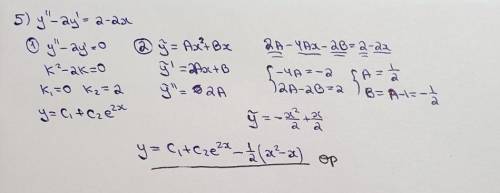 5) y'' - 2y' = 2 - 2x
① y'' - 2y = 0
k² - 2k = 0
k₁ = 0 k₂ = 2
y = C₁ + C₂e²ˣ
② ỹ = Ax² + Bx
ỹ' = 2Ax + B
ỹ'' = 2A
2A - 4Ax - 2B = 2 - 2x
{ -4A = -2 { A = 1/2
2A - 2B = 2 B = A - 1 = -1/2
ỹ = -x²/2 + x/2
y = C₁ + C₂e²ˣ - 1/2(x² - x) op